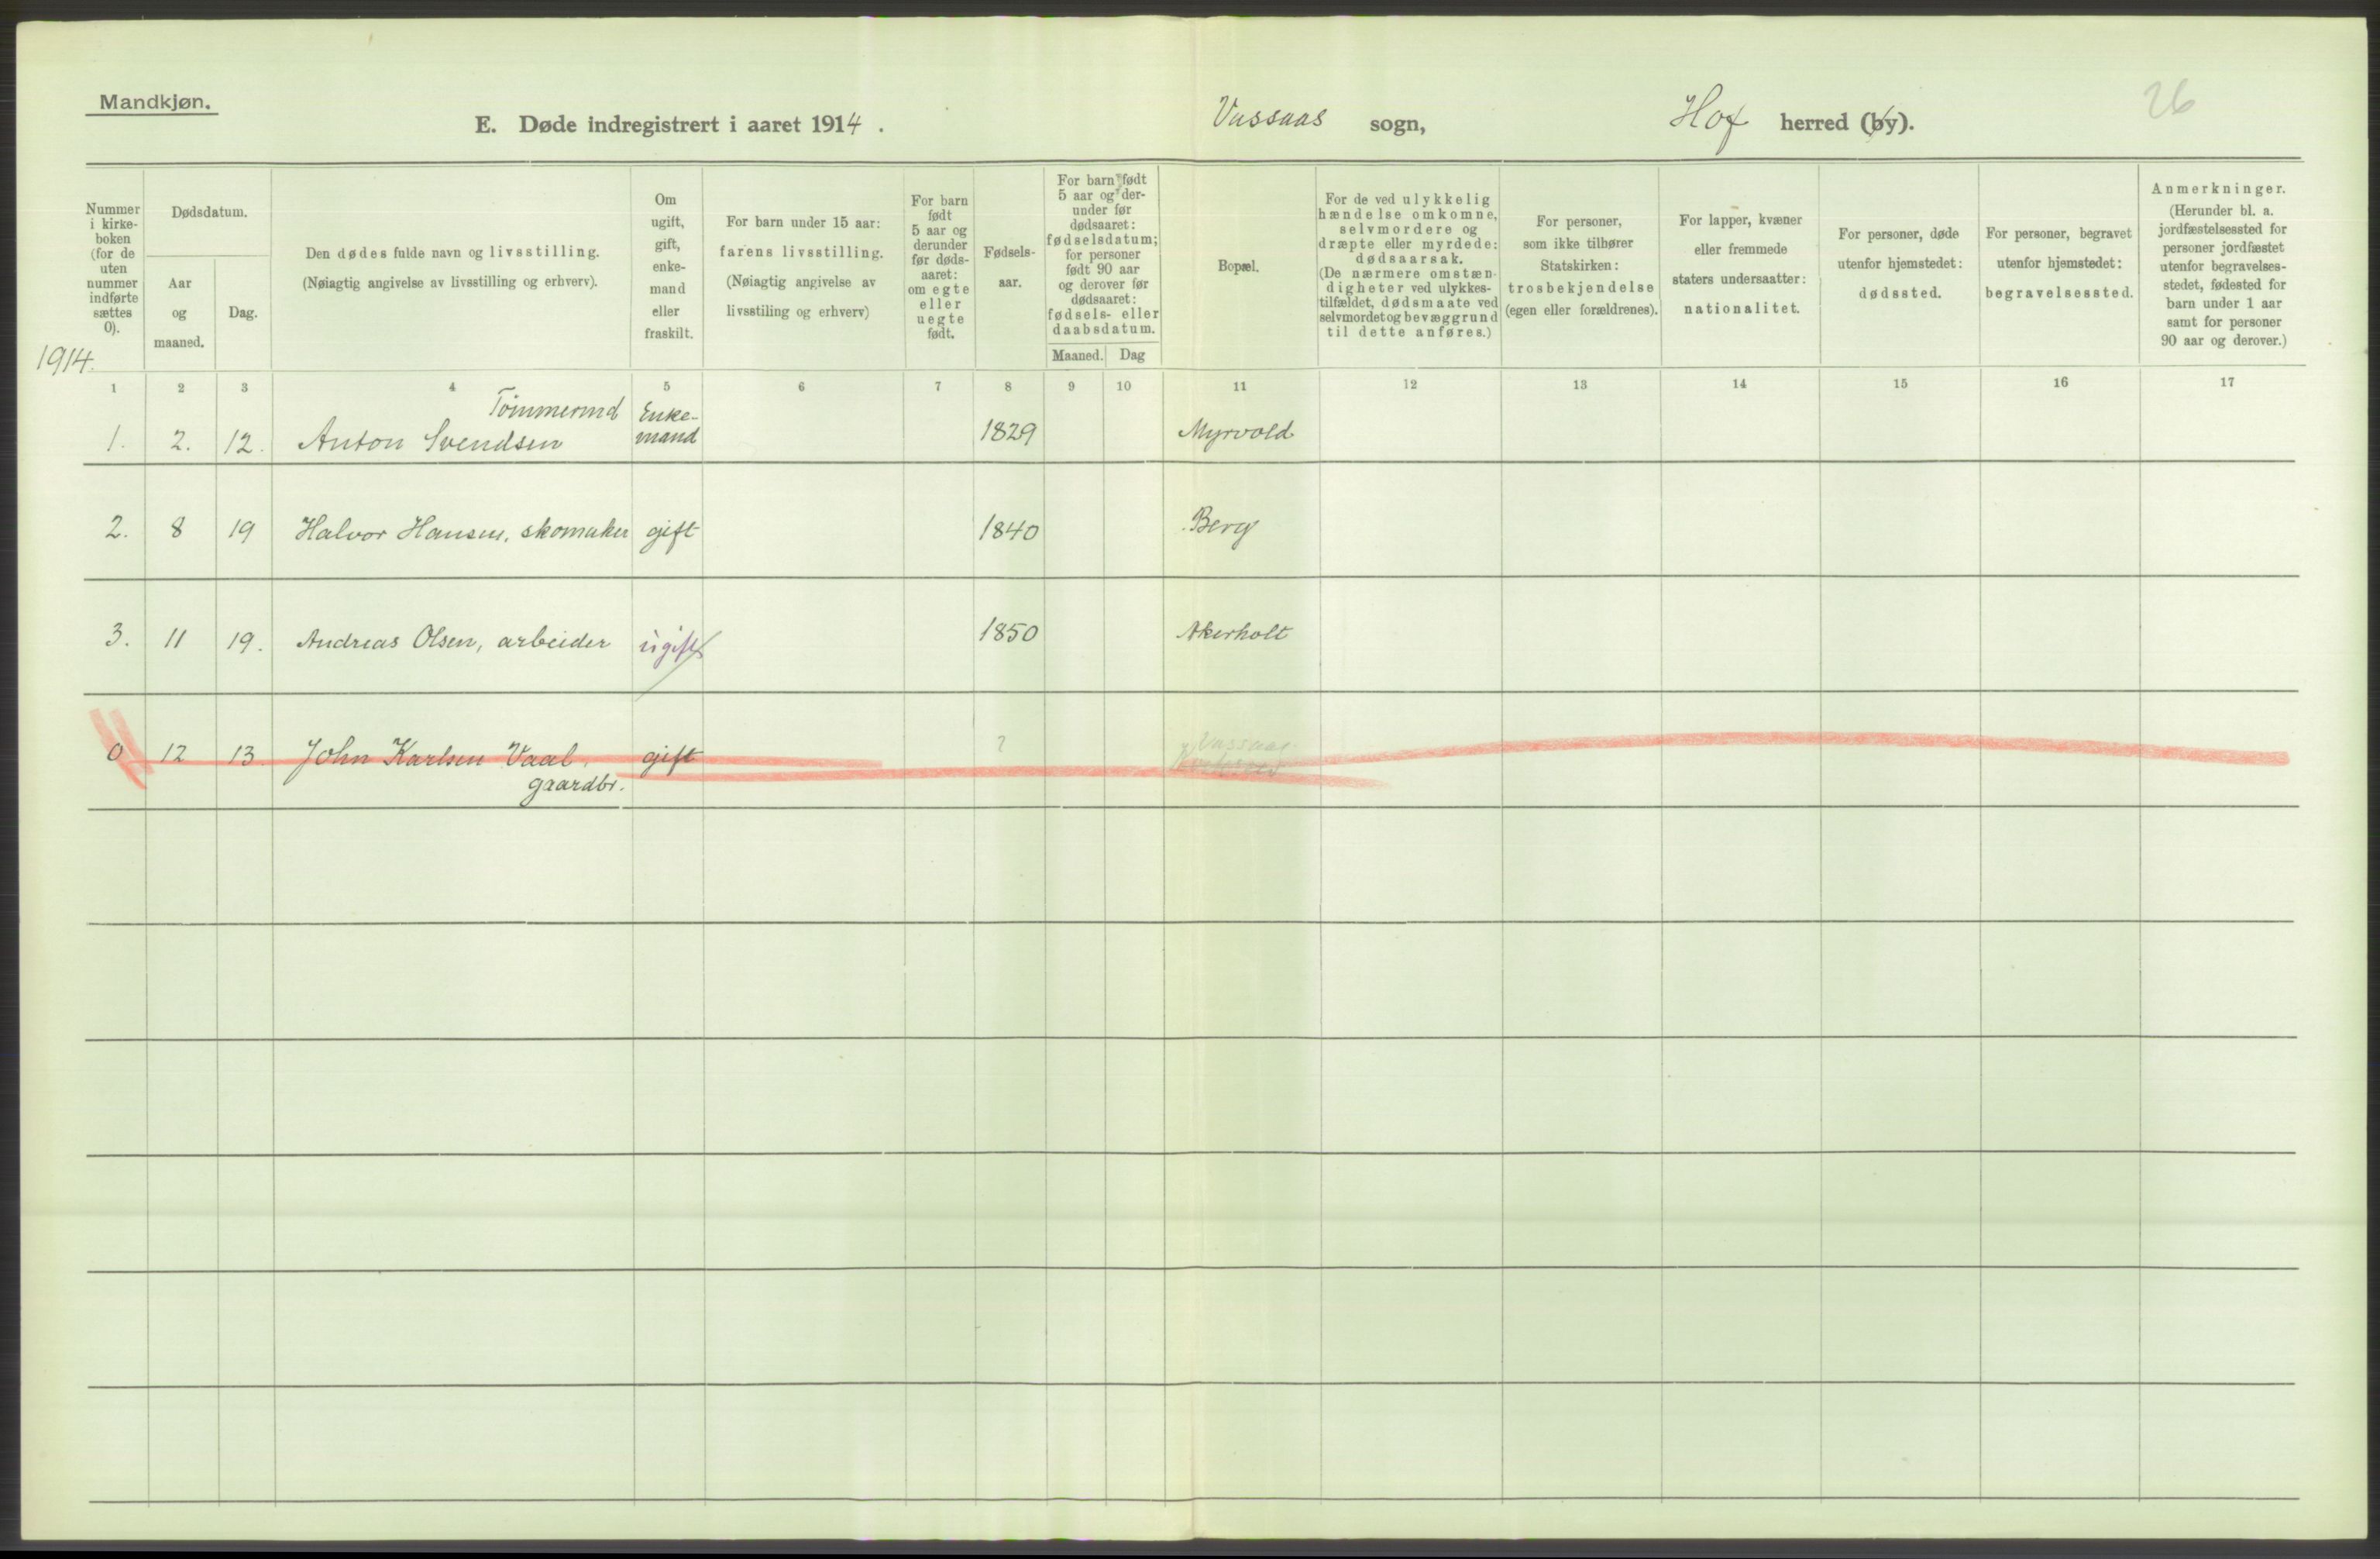 Mandkjøn.
E. Døde indregistrert i aaret 1914.
Vassaas sogn,
Hof herred (by).
26
Nummer i kirke-boken (for de uten nummer indførte sættes 0).
Dødsdatum.
Aar og maaned.
Dag.
Den dødes fulde navn og livsstilling.
(Nøiagtig angivelse av livsstilling og erhverv).
Om ugift, gift, enke-mand eller fraskilt.
For barn under 15 aar:
farens livsstilling.
(Nøiagtig angivelse av livsstiling og erhverv)
For barn født 5 aar og derunder før døds-aaret: om egte eller uegte født.
Fødsels-aar.
For barn født 5 aar og der-under før dødsaaret: fødselsdatum; for personer født 90 aar og derover før dødsaaret: fødsels- eller daabsdatum.
Maaned. Dag
Bopæl.
For de ved ulykkelig hændelse omkomne, selvmordere og dræpte eller myrdede: dødsaarsak. (De nærmere omstæn-digheter ved ulykkes-tilfældet, dødsmaate ved selvmordet og bevæggrund til dette anføres.)
For personer, som ikke tilhører Statskirken: trosbekjendelse (egen eller forældrenes).
For lapper, kvæner eller fremmede staters undersaatter: nationalitet.
For personer, døde utenfor hjemstedet: dødssted.
For personer, begravet utenfor hjemstedet: begravelsessted.
Anmerkninger.
(Herunder bl. a. jordfæstelsessted for personer jordfæstet utenfor begravelses-stedet, fødested for barn under 1 aar samt for personer 90 aar og derover.)
1914.
1 2 3 4 5 6 7 8 9 10 11 12 13 14 15 16 17
Tømmermd Enke-
1. 2. 12. Anton Svendsen mand 1829 Myrvold
2. 8 19 Halvor Hansen, skomaker gift 1840 Berg
3. 11 19. Andreas Olsen, arbeider ugift 1850 Akerholt
0 12 13 John Karlsen Vaal, gift ? Vassaas
gaardbr.